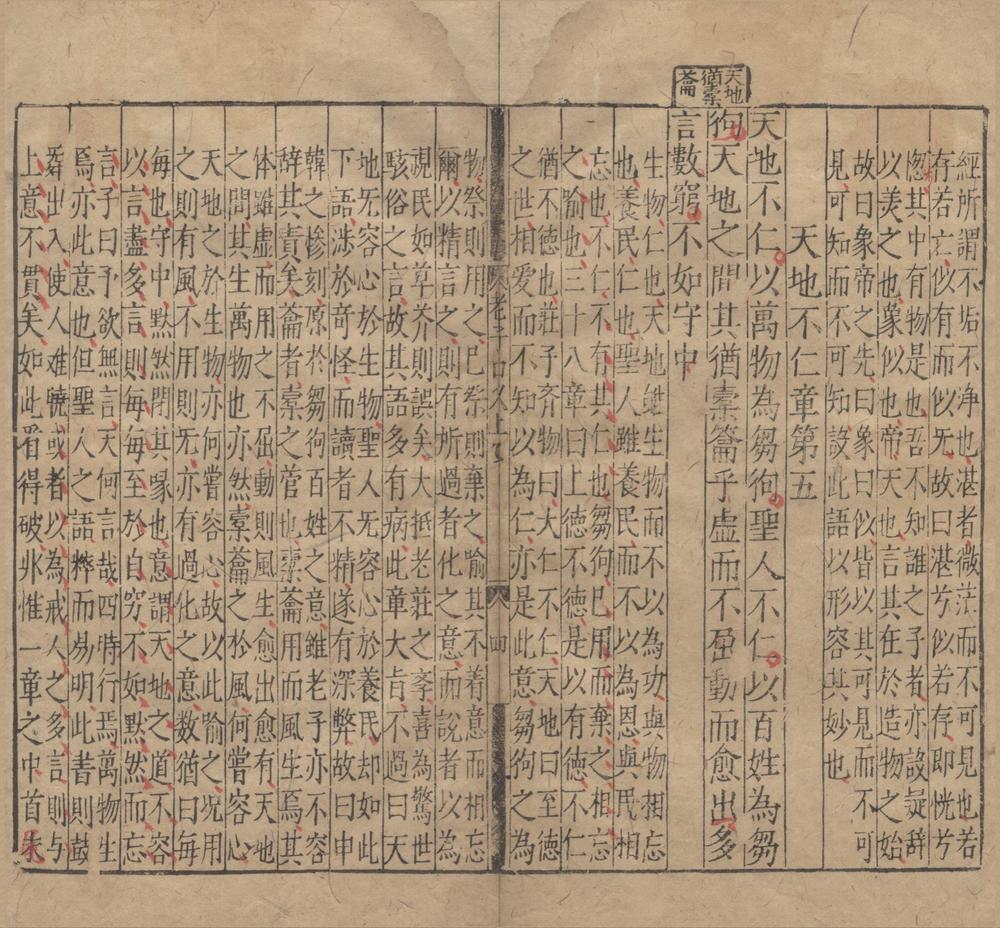 經所謂不垢不净也湛者微茫而不可見也若
存若亡似有而似无故曰湛兮似若存即恍兮
惚其中有物是也吾不知誰之子者亦設疑辞
以美之也象似也帝天也言其在於造物之始
故曰象帝之先曰象曰似皆以其可見而不可
見可知而不可知設此語以形容其妙也
天地不仁章第五
天地不仁以萬物為芻狗聖人不仁以百姓為芻
狗天地之間其猶橐籥乎虛而不屈動而愈出多
言數窮不如守中
天地
猶橐
籥
生物仁也天地雖生物而不以為功與物相忘
也養民仁也聖人雖養民而不以為恩與民相
忘也不仁不有其仁也芻狗已用而棄之相忘
之喻也三十八章曰上德不德是以有德不仁
猶不德也莊子齊物曰大仁不仁天地曰至德
之世相愛而不知以為仁亦是此意芻狗之為
老子口义上
四
物祭則用之已祭則棄之喻其不着意而相忘
爾以精言之則有所過者化之意而說者以為
視民如草芥則誤矣大抵老莊之斈喜為驚世
駭俗之言故其語多有病此章大旨不過曰天
地旡容心於生物聖人旡容心於養民却如此
下語涉於奇怪而讀者不精遂有深弊故曰申
韓之慘刻原於芻狗百姓之意雖老子亦不容
辞其責矣籥者橐之管也橐籥用而風生焉其
体雖虛而用之不屈動則風生愈出愈有天地
之間其生萬物也亦然橐籥之於風何嘗容心
天地之於生物亦何嘗容心故以此喻之况用
之則有風不用則旡亦有過化之意数猶曰每
每也守中默然閉其喙也意謂天地之道不容
以言盡多言則每每至於自穷不如默然而忘
言子曰予欲無言天何言哉四時行焉萬物生
焉亦此意也但聖人之語粹而易明此書則鼓
舞出入使人难曉或者以為戒人之多言則与
上意不貫矣如此看得破非惟一章之中首末